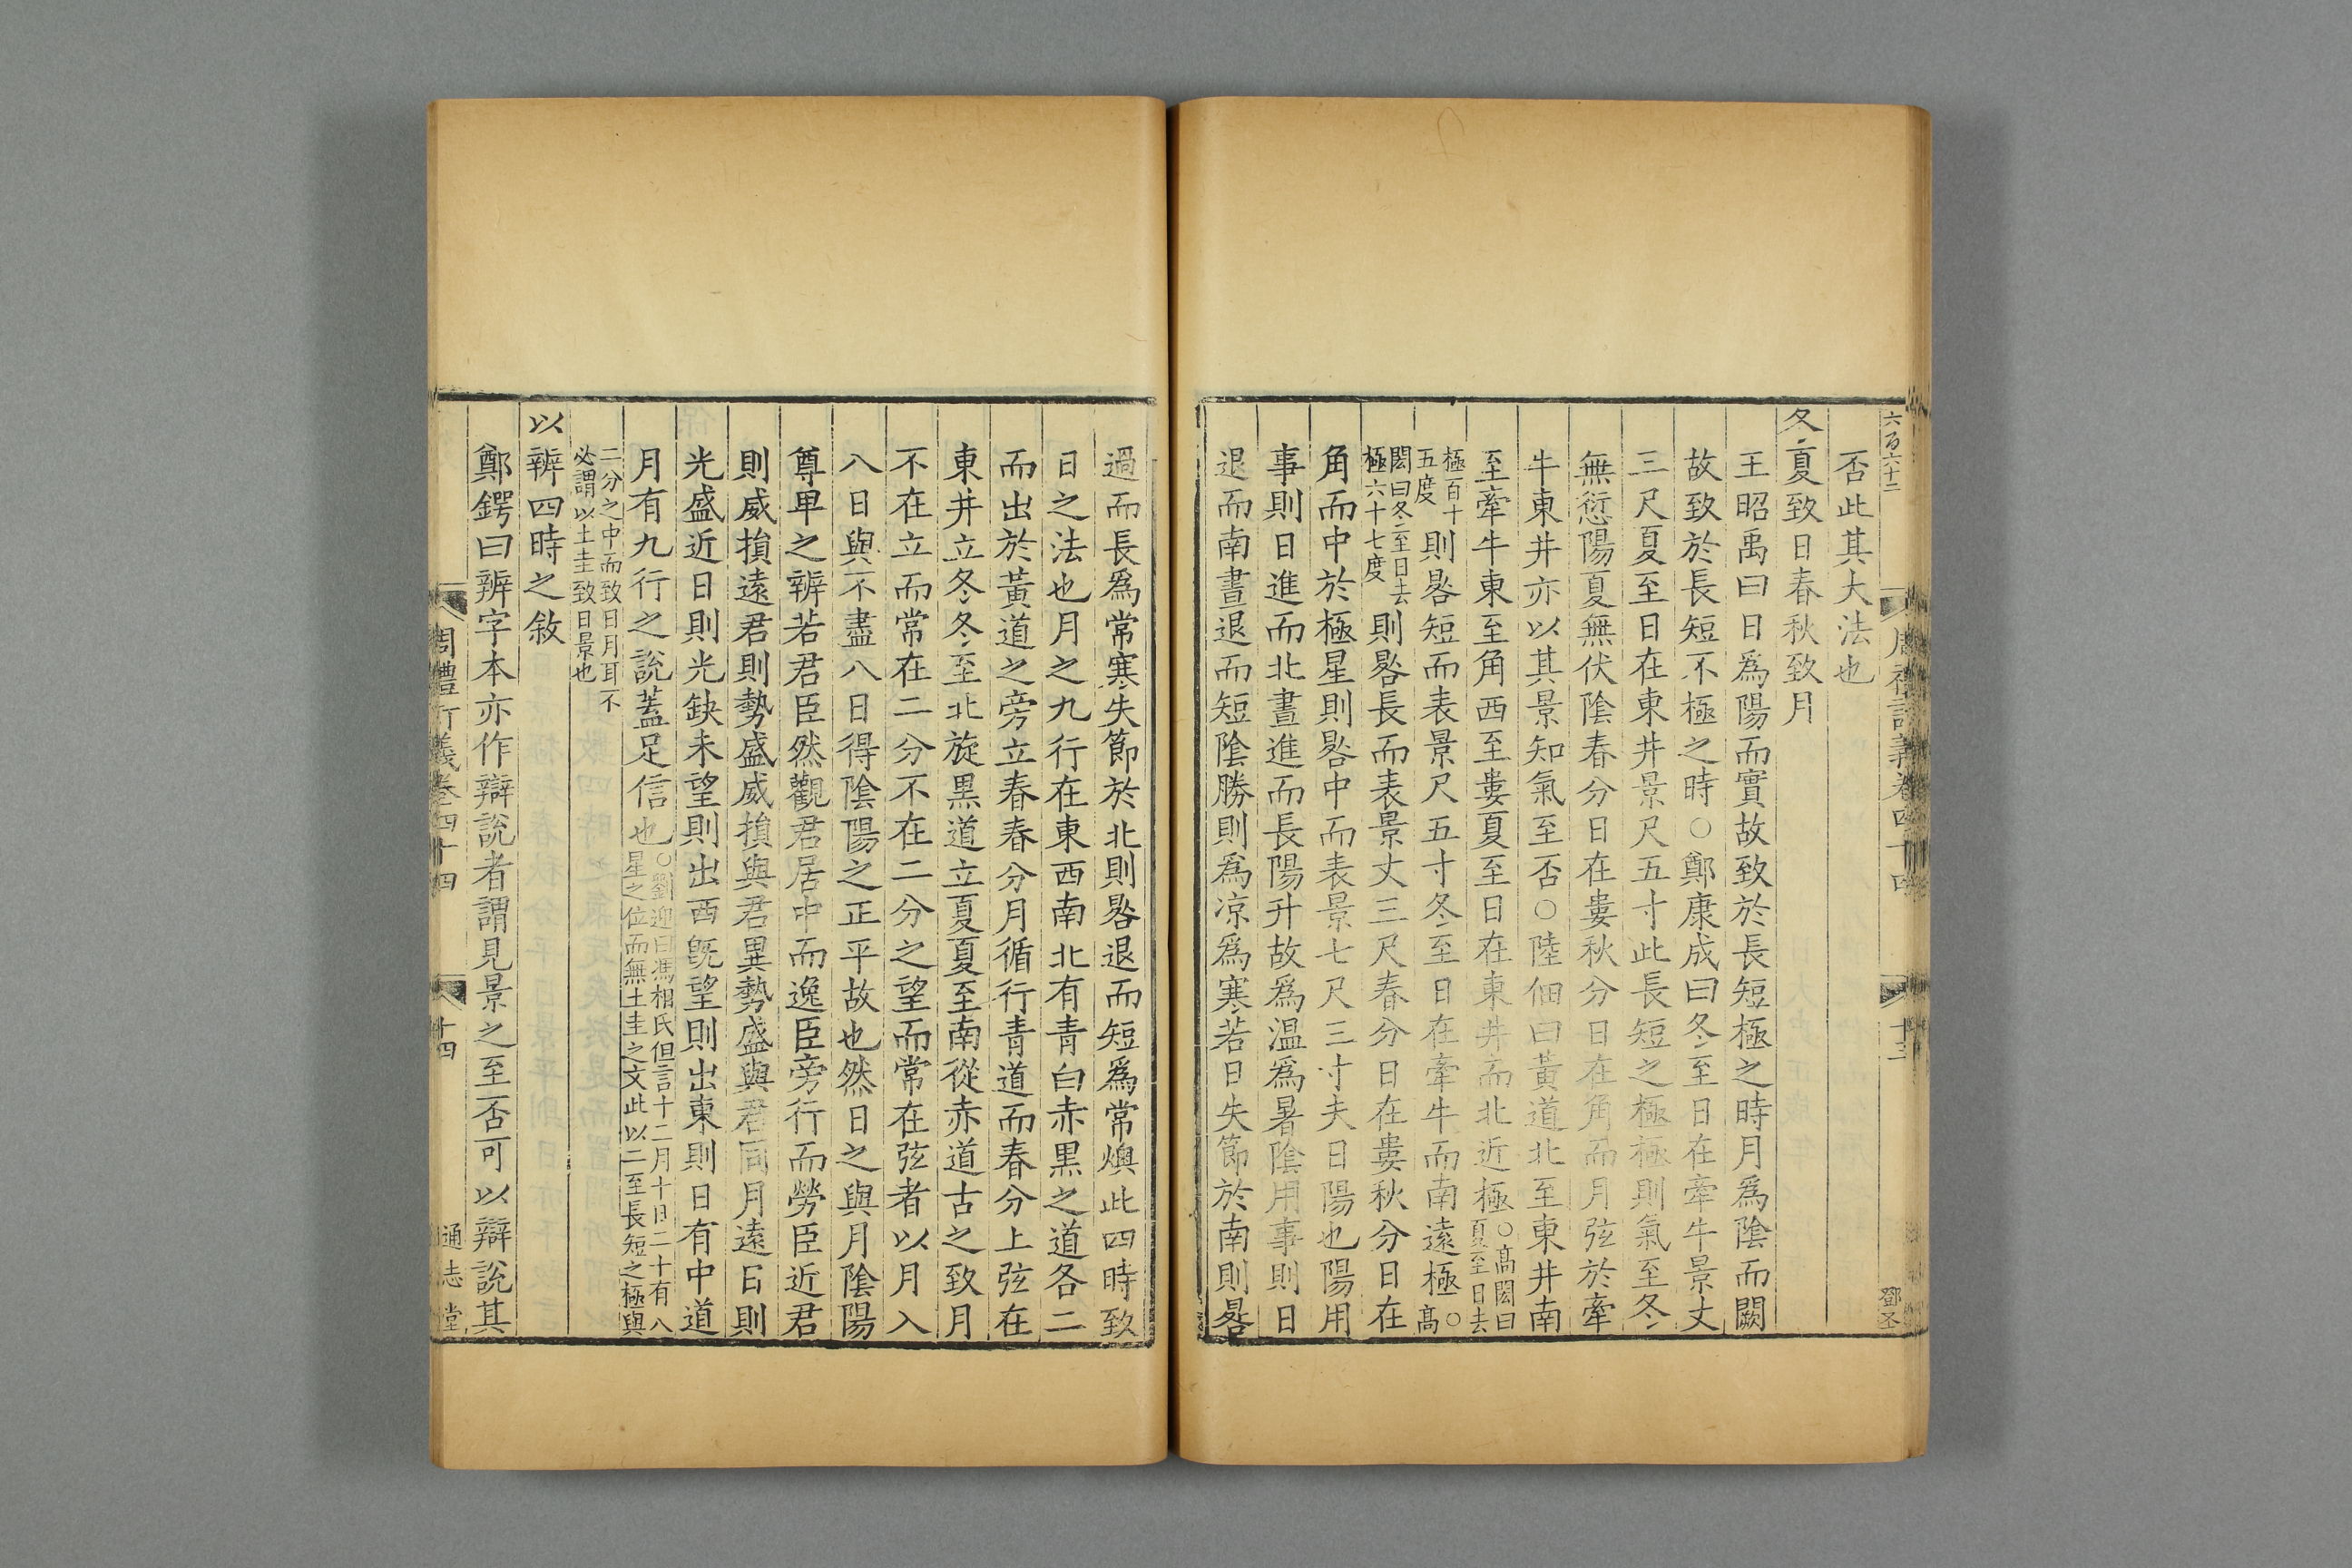 六百六十二
周禮訂義卷四十四
十三
鄧圣
否此其大法也
冬夏致日春秋致月
王昭禹曰日爲陽而實故致於長短極之時月爲陰而闕
故致於長短不極之時○鄭康成曰冬至日在牽牛景丈
三尺夏至日在東井景尺五寸此長短之極極則氣至冬
無愆陽夏無伏陰春分日在婁秋分日在角而月弦於牽
牛東井亦以其景知氣至否○陸佃曰黃道北至東井南
至牽牛東至角西至婁夏至日在東井而北近極○高閎曰夏至日去
極百十五度則晷短而表景尺五寸冬至日在牽牛而南遠極○高
閎曰冬至日去極六十七度則晷長而表景丈三尺春分日在婁秋分日在
角而中於極星則晷中而表景七尺三寸夫日陽也陽用
事則日進而北晝進而長陽升故爲温爲暑陰用事則日
退而南晝退而短陰勝則爲凉爲寒若日失節於南則晷
過而長爲常寒失節於北則晷退而短爲常燠此四時致
日之法也月之九行在東西南北有青白赤黑之道各二
而出於黃道之旁立春春分月循行青道而春分上弦在
東井立冬冬至北旋黑道立夏夏至南從赤道古之致月
不在立而常在二分不在二分之望而常在弦者以月入
八日與不盡八日得陰陽之正平故也然日之與月陰陽
尊卑之辨若君臣然觀君居中而逸臣旁行而勞臣近君
則威損遠君則勢盛威損與君異勢盛與君同月遠日則
光盛近日則光缺未望則出西旣望則出東則日有中道
月有九行之說蓋足信也○劉迎曰馮相氏但言十二月十日二十有八星之位而無土圭之文此以二至長短之極與
二分之中而致日月耳不必謂以土圭致日景也
以辨四時之敘
鄭鍔曰辨字本亦作辯說者謂見景之至否可以辯說其
周禮訂義卷四十四
十四
通志堂